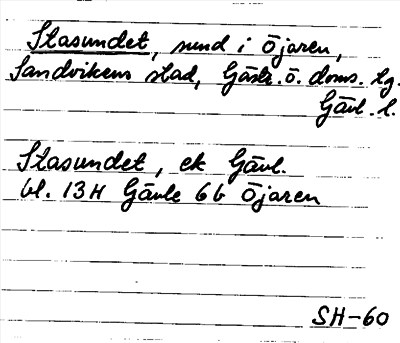 Stasundet, sund i Öjaren,
Sandvikens stad, Gästr. ö. doms. lg.
Gävl. l.
Stasundet, ek Gävl.
bl. 13H Gävle 6b Öjaren
SH-60